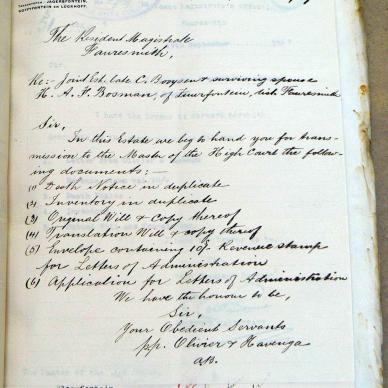 JAGERSFONTEIN,
KOFFYFONTEIN EN LUCKHOFF.
The Resident Magistrate
Fauresmith,
Re:- Joint Est. late C. Booysen & surviving spouse
H. A. F. Bosman, of Leeuwfontein, dist. Fauresmith
Sir,
In this Estate we beg to hand you for trans-
mission to the Master of the High Court the follow-
ing documents:—
(1) Death Notice in duplicate
(2) Inventory in duplicate
(3) Original Will & Copy thereof
(4) Translation Will & copy thereof
(5) Envelope containing 10/- Revenue Stamp
for Letters of Administration
(6) Application for Letters of Administration
We have the honour to be,
Sir,
Your Obedient Servants
pp. Olivier & Havenga